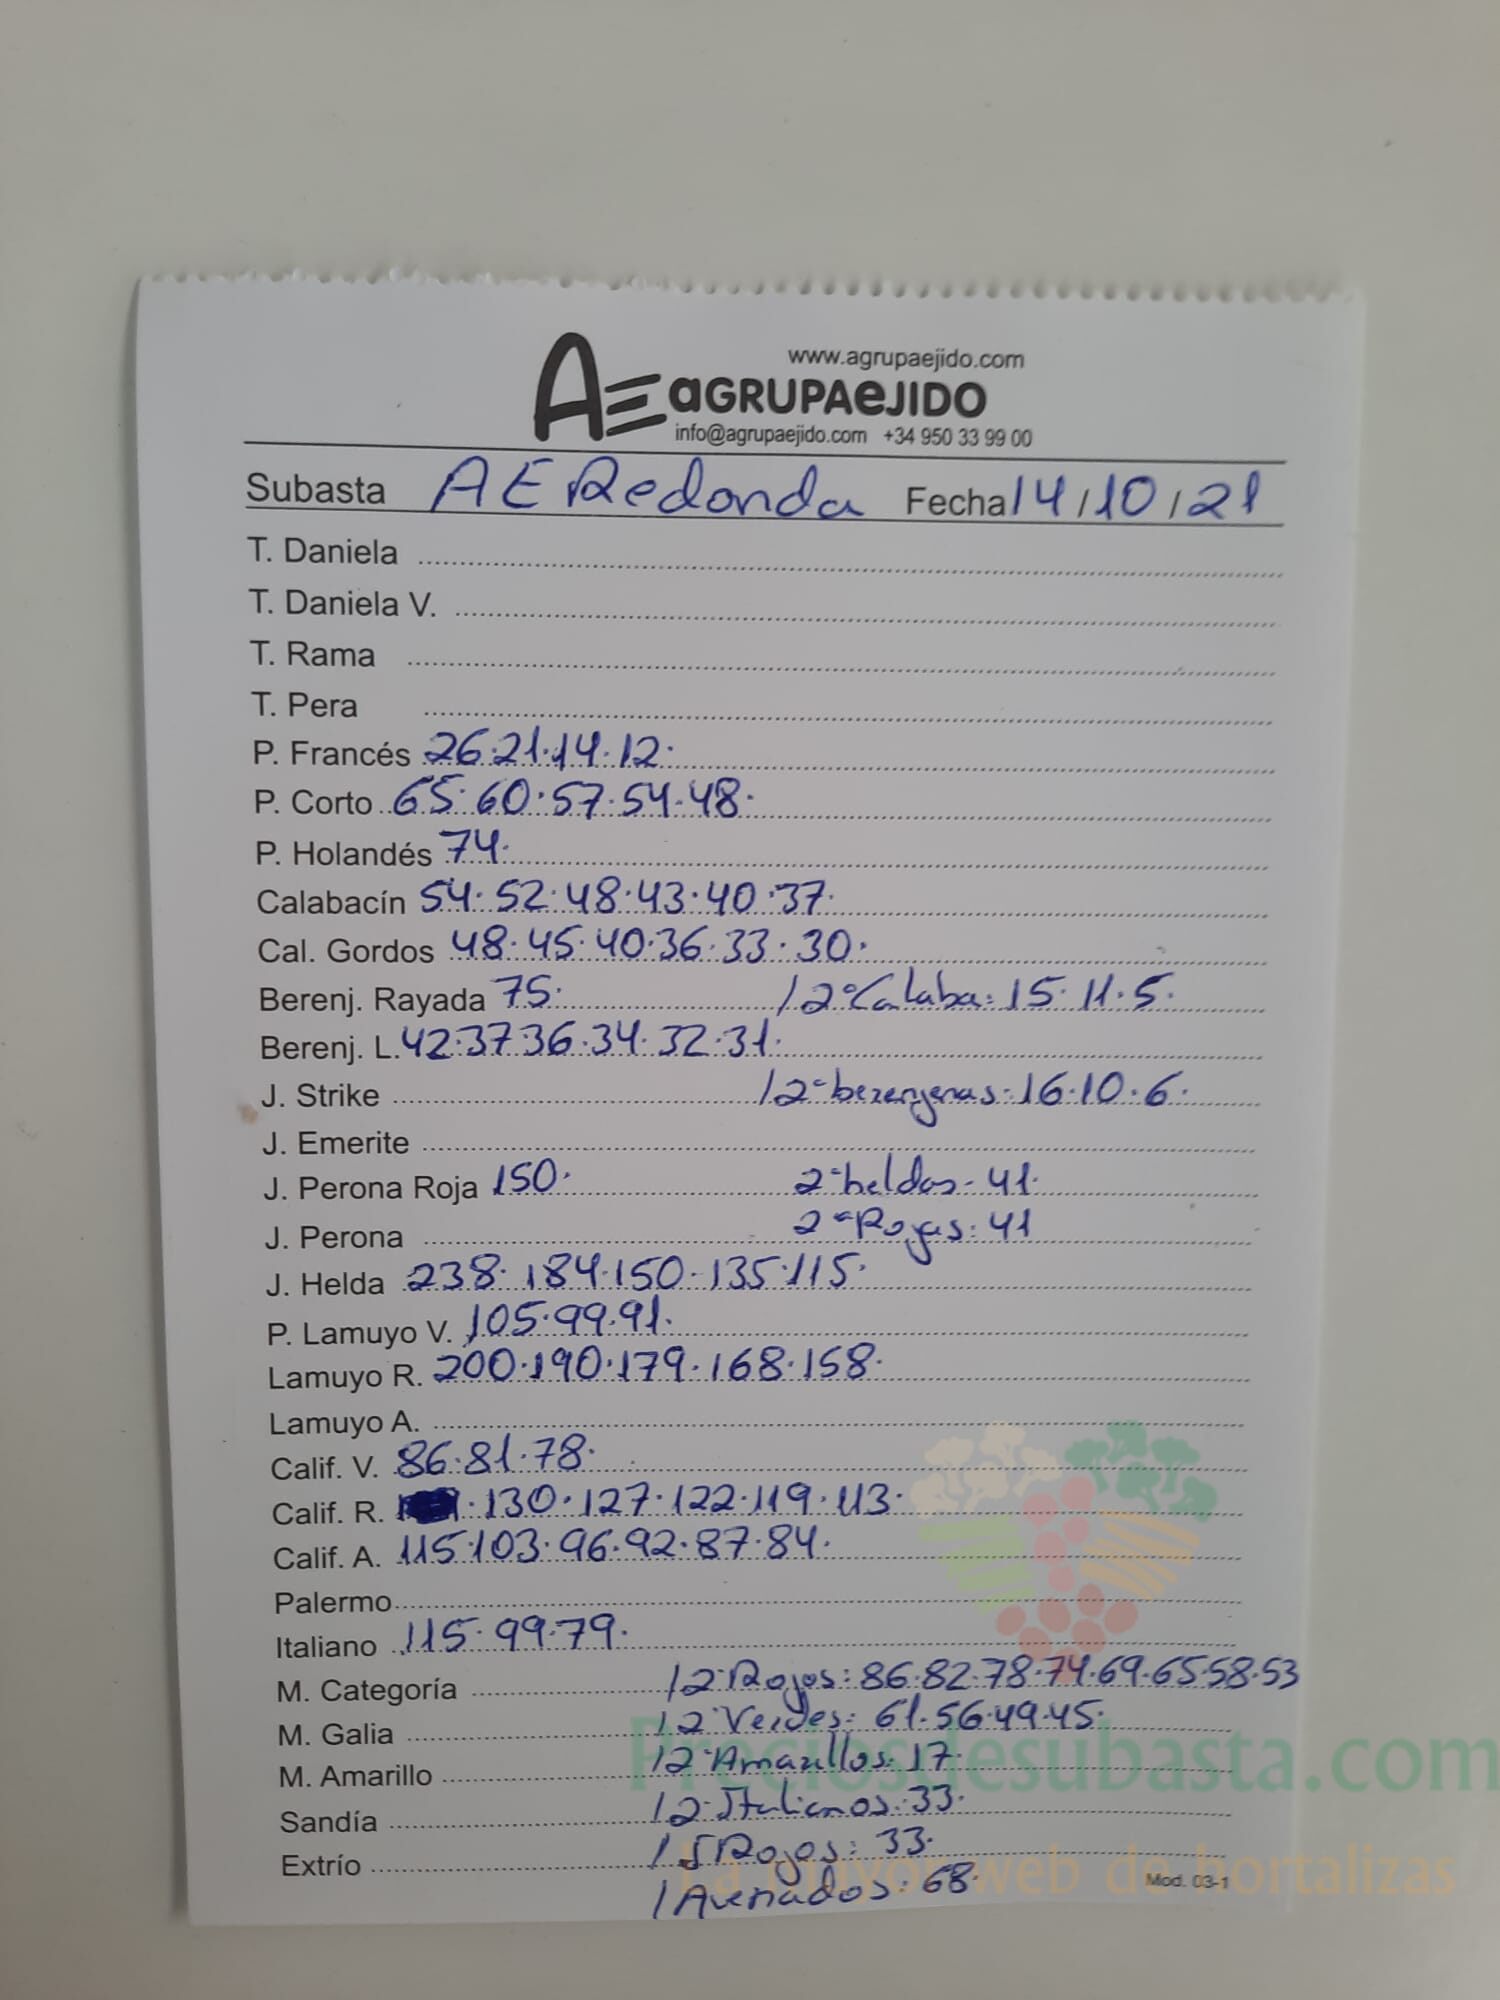 www.agrupaejido.com
AE aGRUPAeJIDO
info@agrupaejido.com +34 950 33 99 00
Subasta AE Redonda Fecha 14/10/21
T. Daniela
T. Daniela V.
T. Rama
T. Pera
P. Francés 26.21.14.12.
P. Corto 65.60.57.54.48.
P. Holandés 74.
Calabacín 54.52.48.43.40.37.
Cal. Gordos 48.45.40.36.33.30.
Berenj. Rayada 75. / 2ªCalaba: 15.11.5.
Berenj. L. 42.37.36.34.32.31.
J. Strike / 2ªberenjenas: 16.10.6.
J. Emerite
J. Perona Roja 150. 2ªheldas- 41.
J. Perona 2ªRojas: 41
J. Helda 238.184.150.135.115.
P. Lamuyo V. 105.99.91.
Lamuyo R. 200.190.179.168.158.
Lamuyo A.
Calif. V. 86.81.78.
Calif. R. .130.127.122.119.113.
Calif. A. 115.103.96.92.87.84.
Palermo
Italiano 115.99.79.
M. Categoría / 2ªRojos: 86.82.78.74.69.65.58.53
M. Galia / 2ªVerdes: 61.56.49.45.
M. Amarillo / 2ªAmarillos: 17.
Sandía / 2ªItalianos: 33.
Extrío / 5Rojos: 33.
/ Averiados: 68.
Mod. 03-1
Preciosdesubasta.com
La mayor web de hortalizas